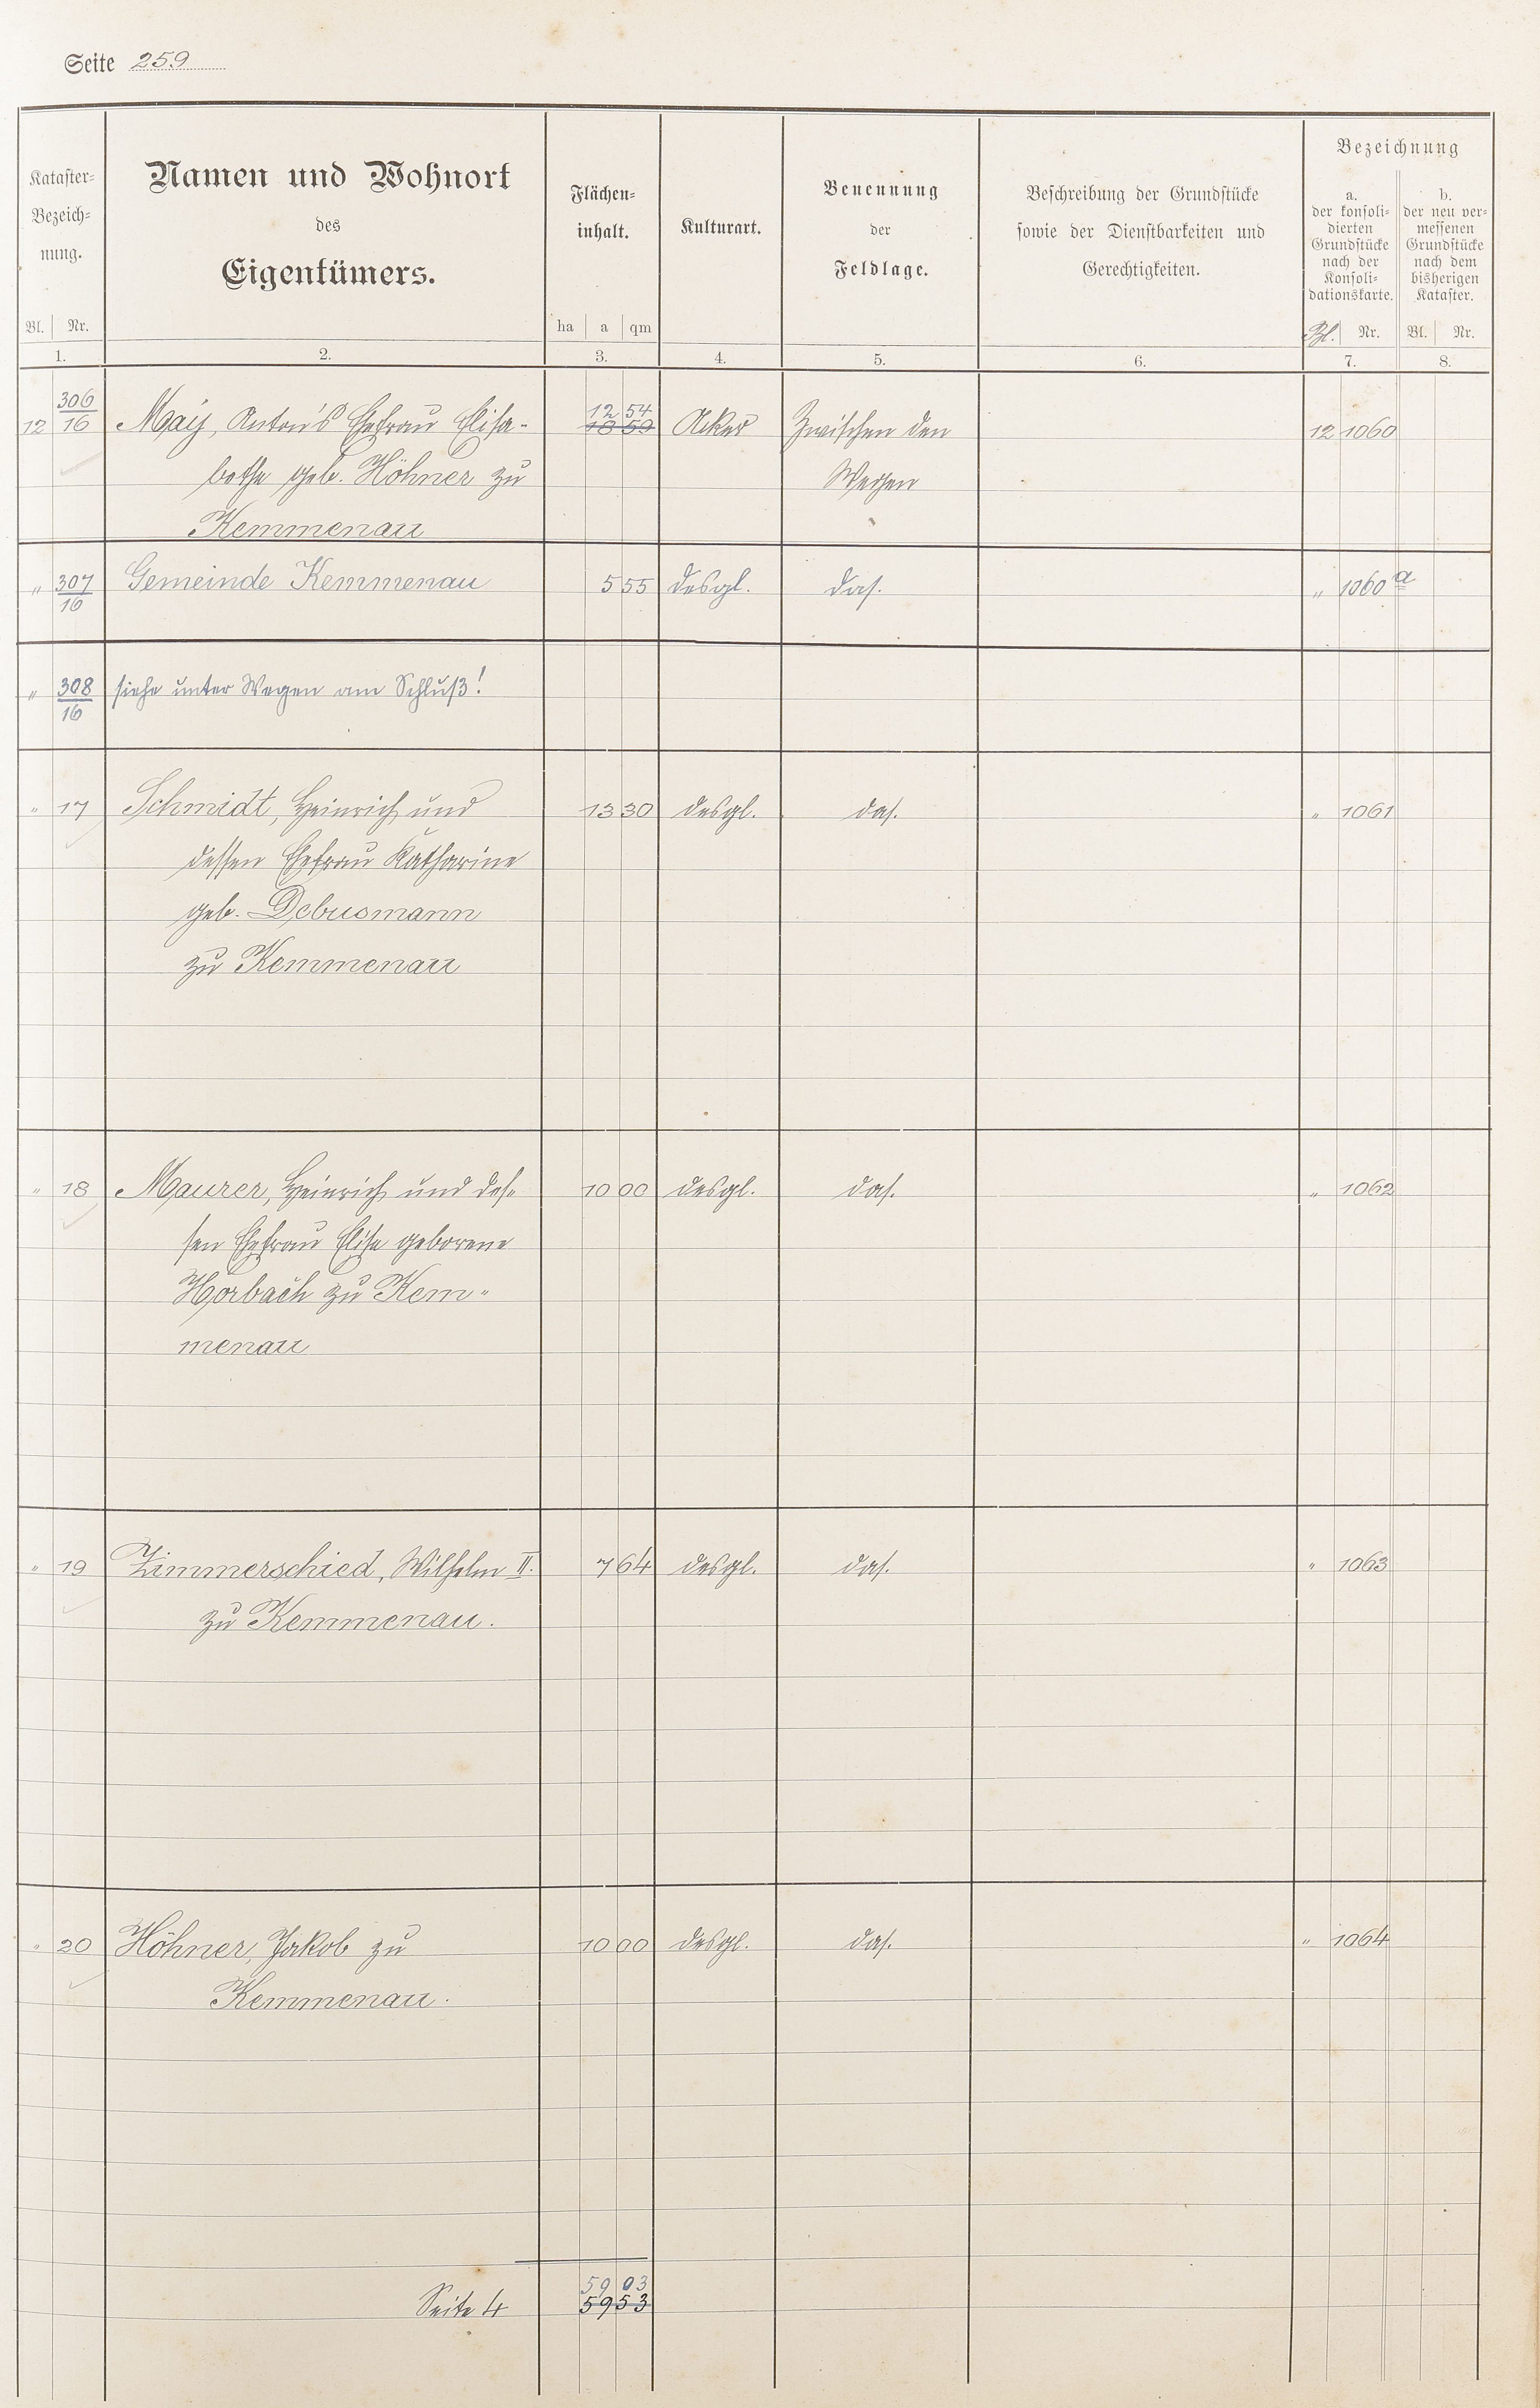 Seite 259
Kataster-
Bezeich-
nung.
Bl. Nr.
1.
Namen und Wohnort
des
Eigentümers.
2.
Flächen-
inhalt.
ha a qm
3.
Kulturart.
4.
Benennung
der
Feldlage.
5.
Beschreibung der Grundstücke
sowie der Dienstbarkeiten und
Gerechtigkeiten.
6.
Bezeichnung
a.
der konsoli-
dierten
Grundstücke
nach der
Konsoli-
dationskarte.
Bl. Nr.
7.
b.
der neu ver-
messenen
Grundstücke
nach dem
bisherigen
Kataster.
Bl. Nr.
8.
306 12 54
12 16 May, Anton's Ehefrau Elisa- Acker Zwischen den 12 1060
bethe geb. Höhner zu Wegen
Kemmenau
" 307 Gemeinde Kemmenau 5 55 desgl. das. " 1060 a
16
" 308 siehe unter Wegen am Schluß!
16
" 17 Schmidt, Heinrich und 13 30 desgl. das. " 1061
dessen Ehefrau Katharine
geb. Debusmann
zu Kemmenau
" 18 Maurer, Heinrich und des- 10 00 desgl. das. " 1062
sen Ehefrau Elise geborene
Horbach zu Kem-
menau
" 19 Zimmerschied, Wilhelm II. 7 64 desgl. das. " 1063
zu Kemmenau.
" 20 Höhner, Jakob zu 10 00 desgl. das. " 1064
Kemmenau.
59 03
Seite 4 59 53